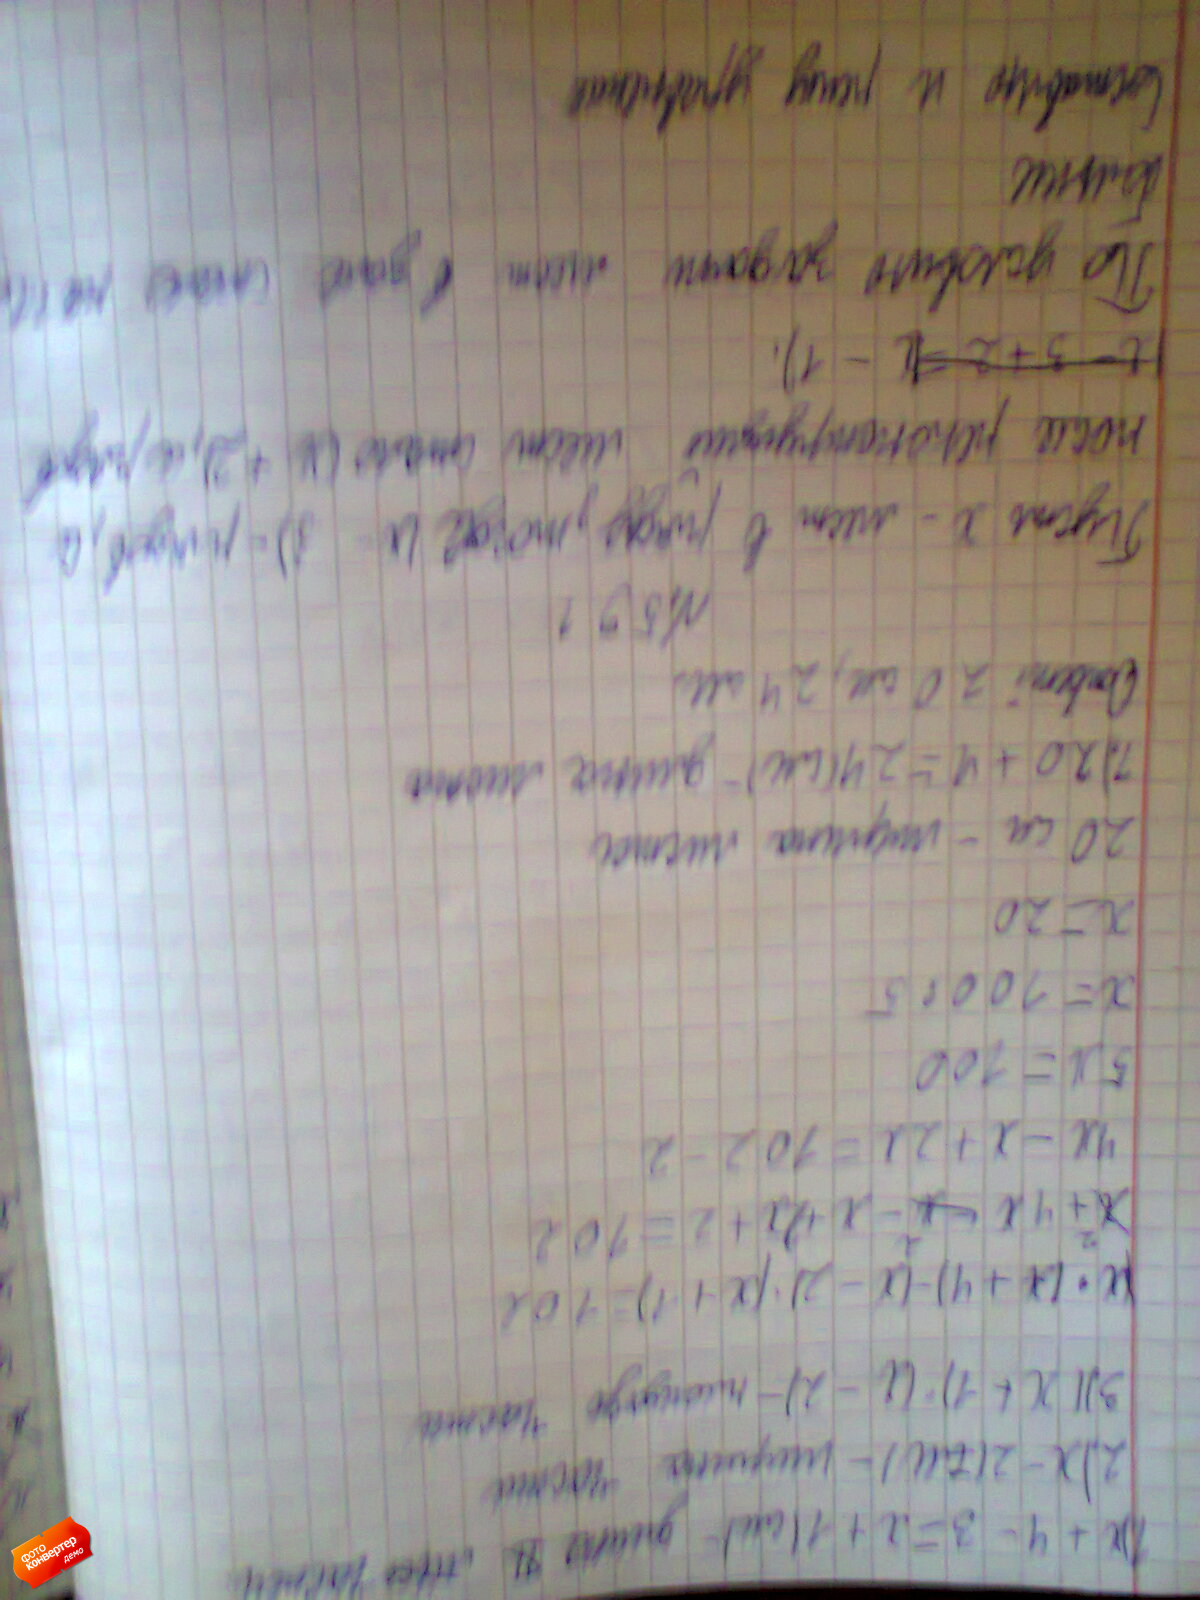 1) x + 4 - 3 = x + 1 (см) - длина части
2) x - 2 (см) - ширина части
3) (x + 1) · (x - 2) - площадь части
x · (x + 4) - (x - 2) · (x + 1) = 102
x² + 4x - x² - x + 2x + 2 = 102
4x - x + 2x = 102 - 2
5x = 100
x = 100 : 5
x = 20
20 см - ширина листа
1) 20 + 4 = 24 (см) - длина листа
Ответ: 20 см, 24 см.
№591
Пусть x - мест в ряду, тогда (x - 3) - рядов, а
после реконструкции мест стало (x + 2), а рядов
x - 3 + 2 = x - 1).
По условию задачи мест в зале стало на
больше
Составлю и решу уравнения
фото
конвертер
демо